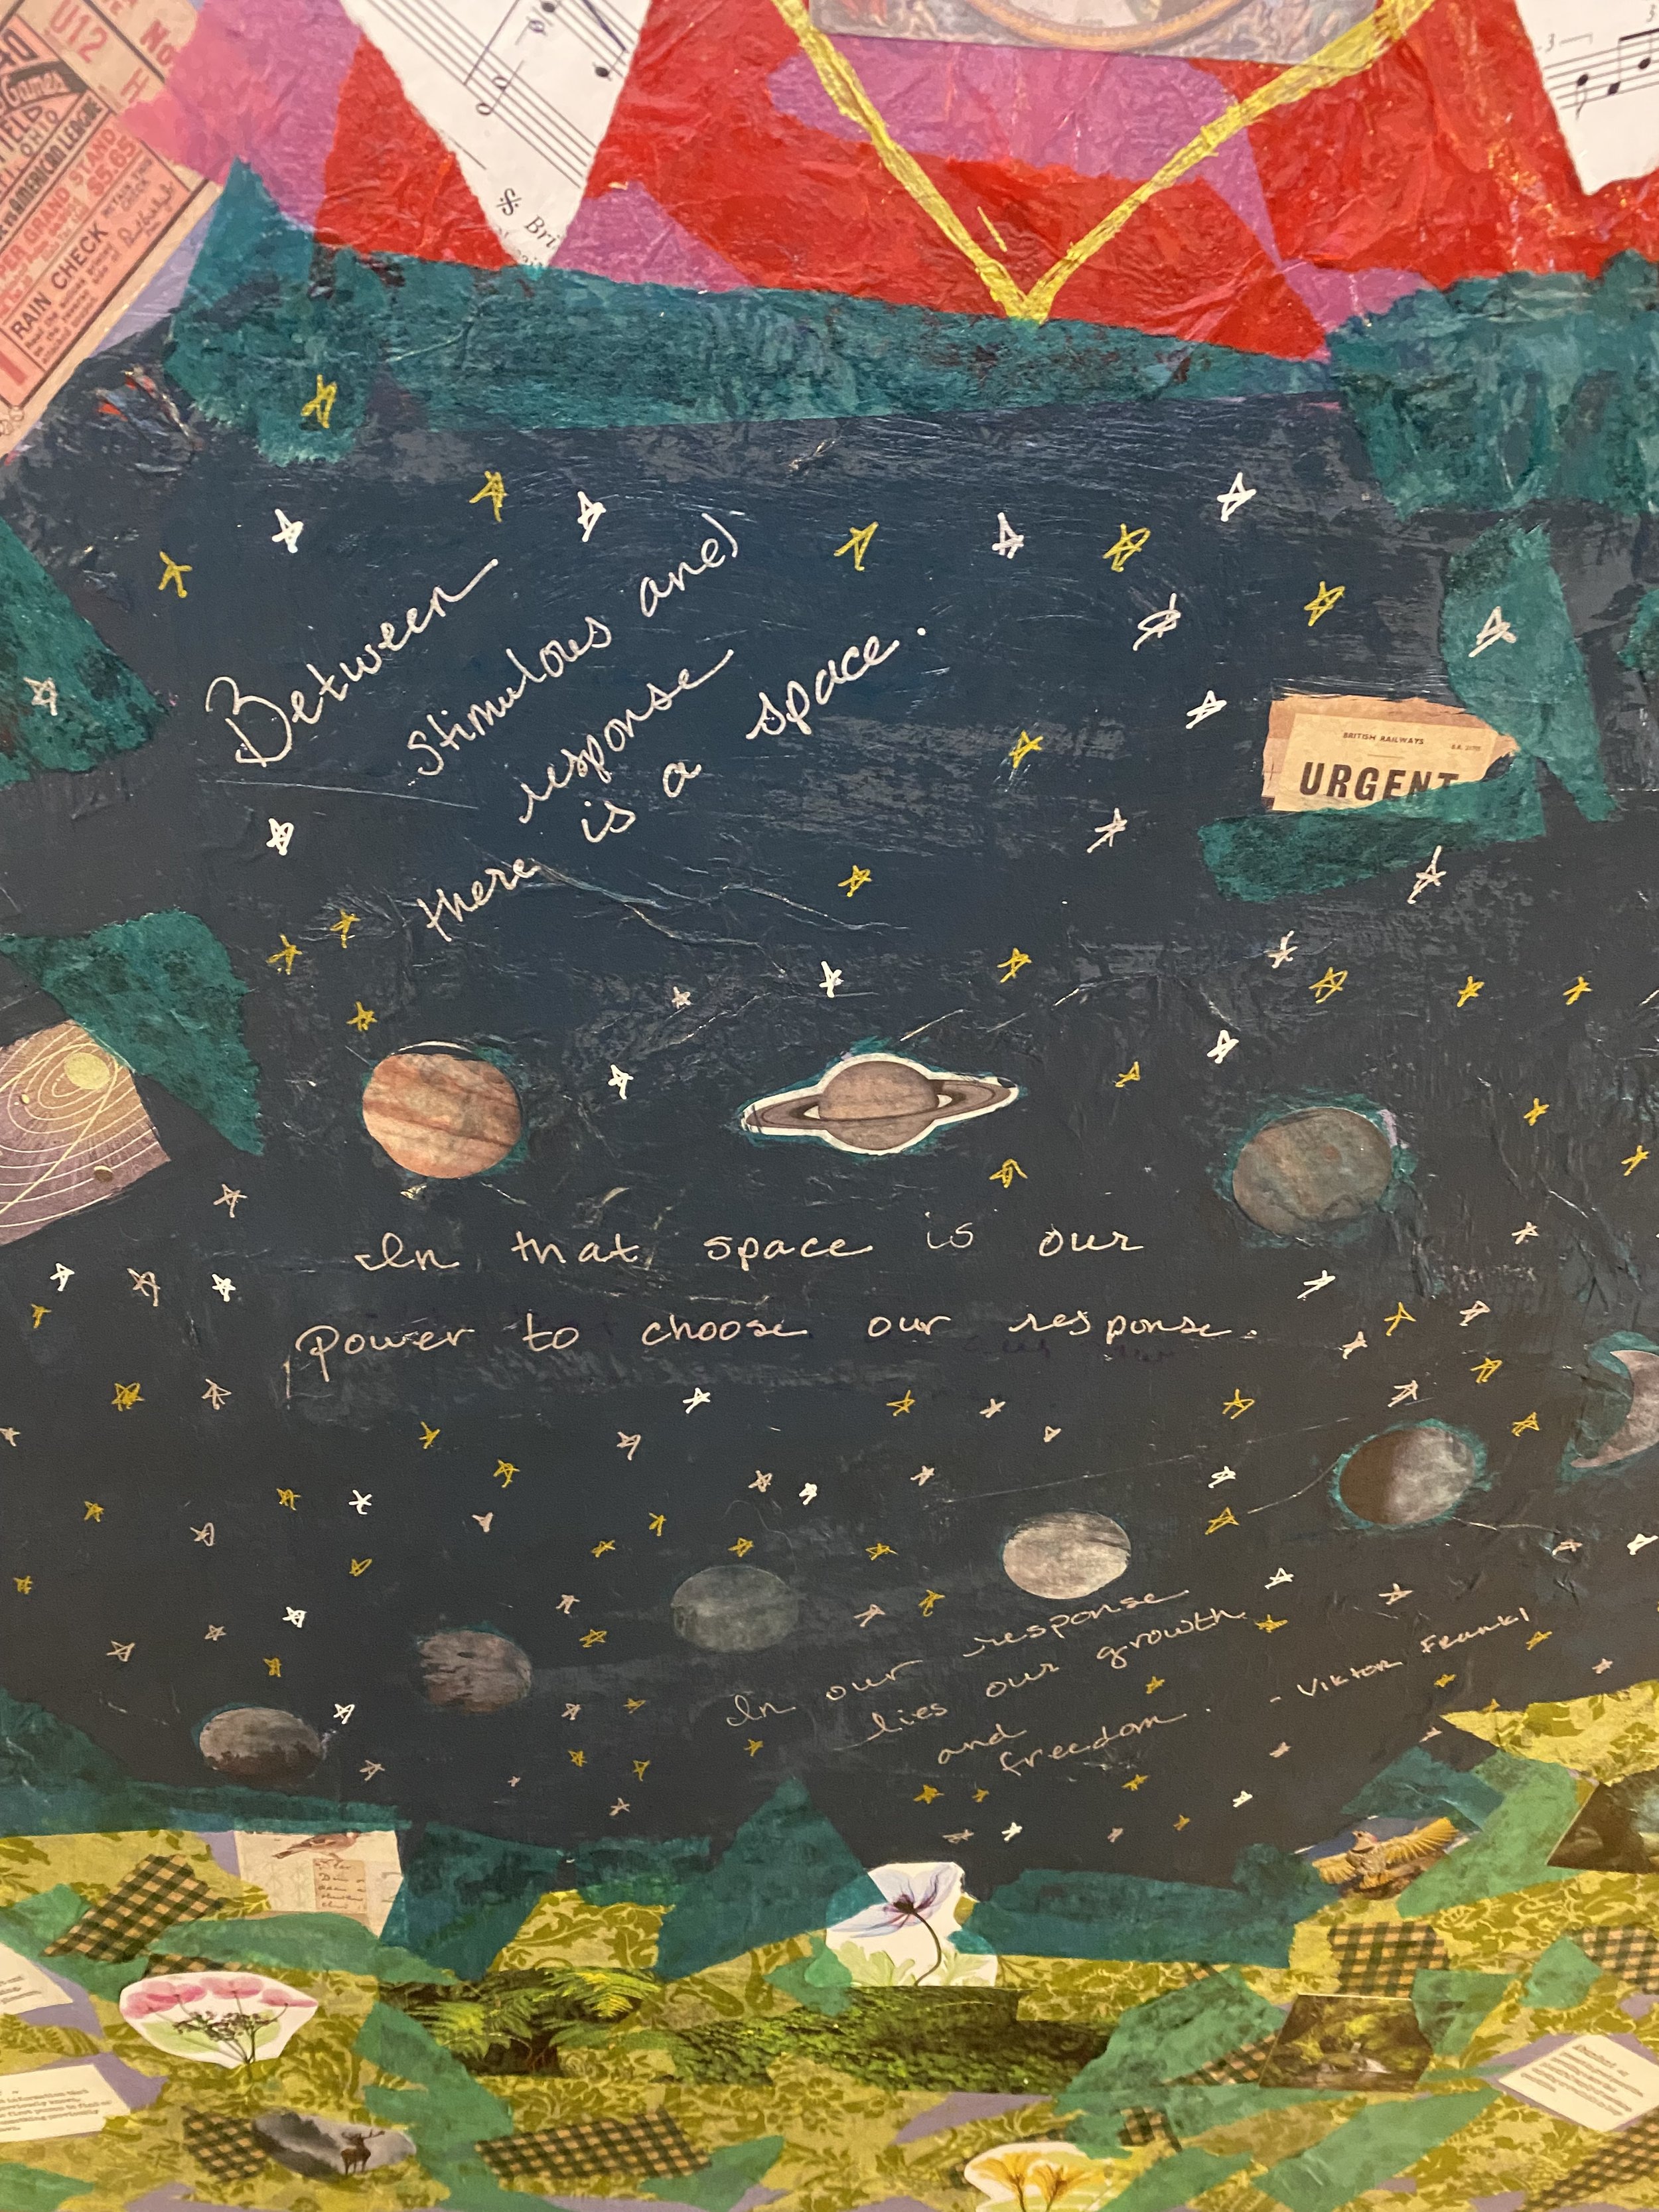 U12
No
H
Games
OHIO
AMERICAN LEAGUE
GRAND STAND
$5.65
RAIN CHECK
3
3
Bri
Between
Stimulous and
response
there is a space.
BRITISH RAILWAYS
URGENT
In that space is our
power to choose our response.
In our response
lies our growth
and
freedom. - Viktor Frankl